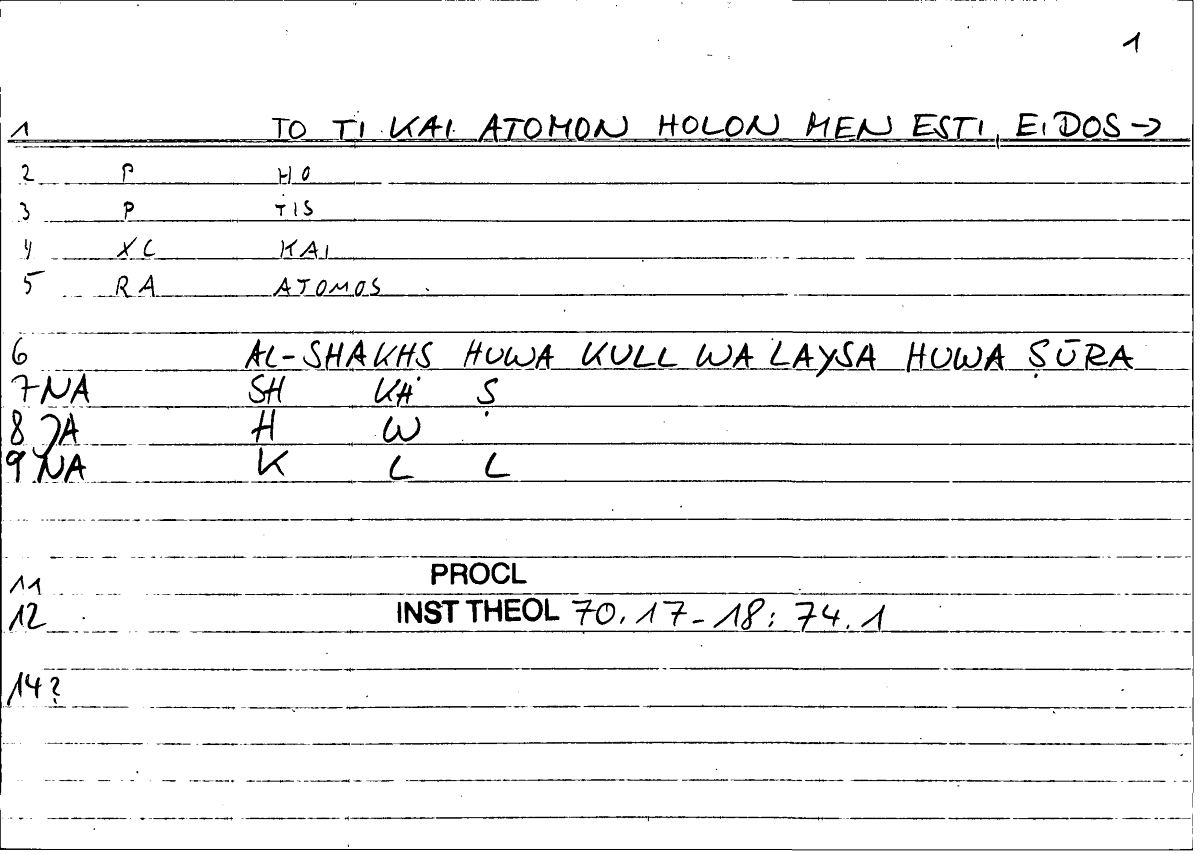 1
1 TO TI KAI ATOMON HOLON MEN ESTI, EIDOS →
2 P HO
3 P TIS
4 XC KAI
5 RA ATOMOS
6 AL-SHAKHS HUWA KULL WA LAYSA HUWA ṢŪRA
7 NA SH KH Ṣ
8 JA H W
9 NA K L L
11 PROCL
12 INST THEOL 70.17-18: 74.1
14?